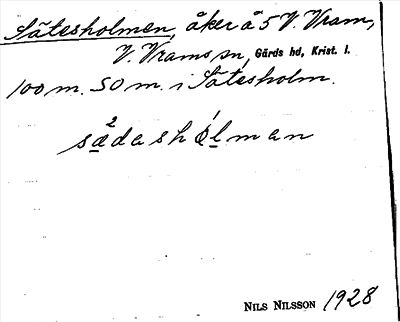 Sätesholmen, åker å 5 V. Vram,
V. Vrams sn, Gärds hd, Krist. l.
100 m. SO m. i Sätesholm.
sædashólman
NILS NILSSON 1928